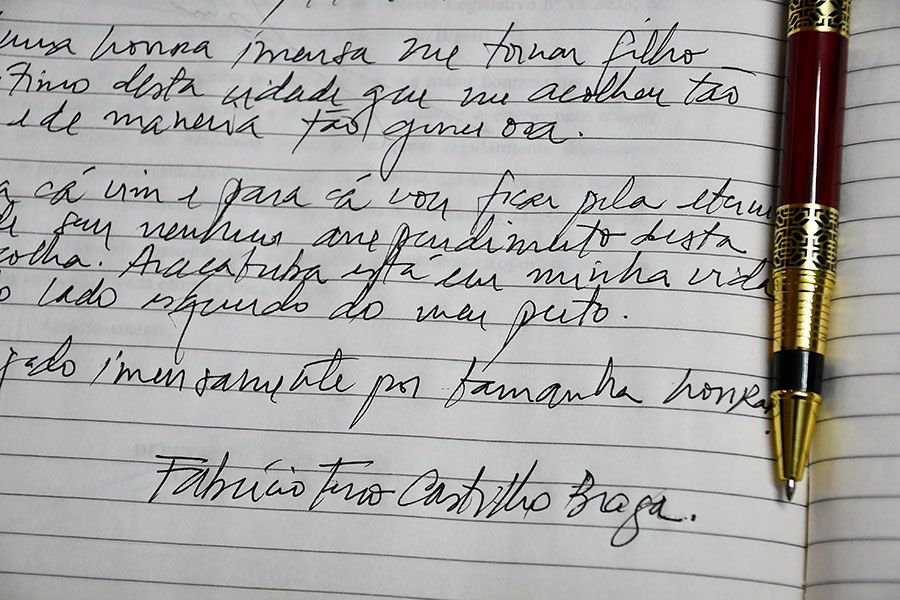 uma honra imensa me tornar filho
timo desta cidade que me acolheu tão
e de maneira tão generosa.
a cá vim e para cá vou ficar pela eterni
de sem nenhum arrependimento desta
colha. Araçatuba está em minha vida
o lado esquerdo do meu peito.
gado imensamente por tamanha honra
Fabrício Castilho Braga.